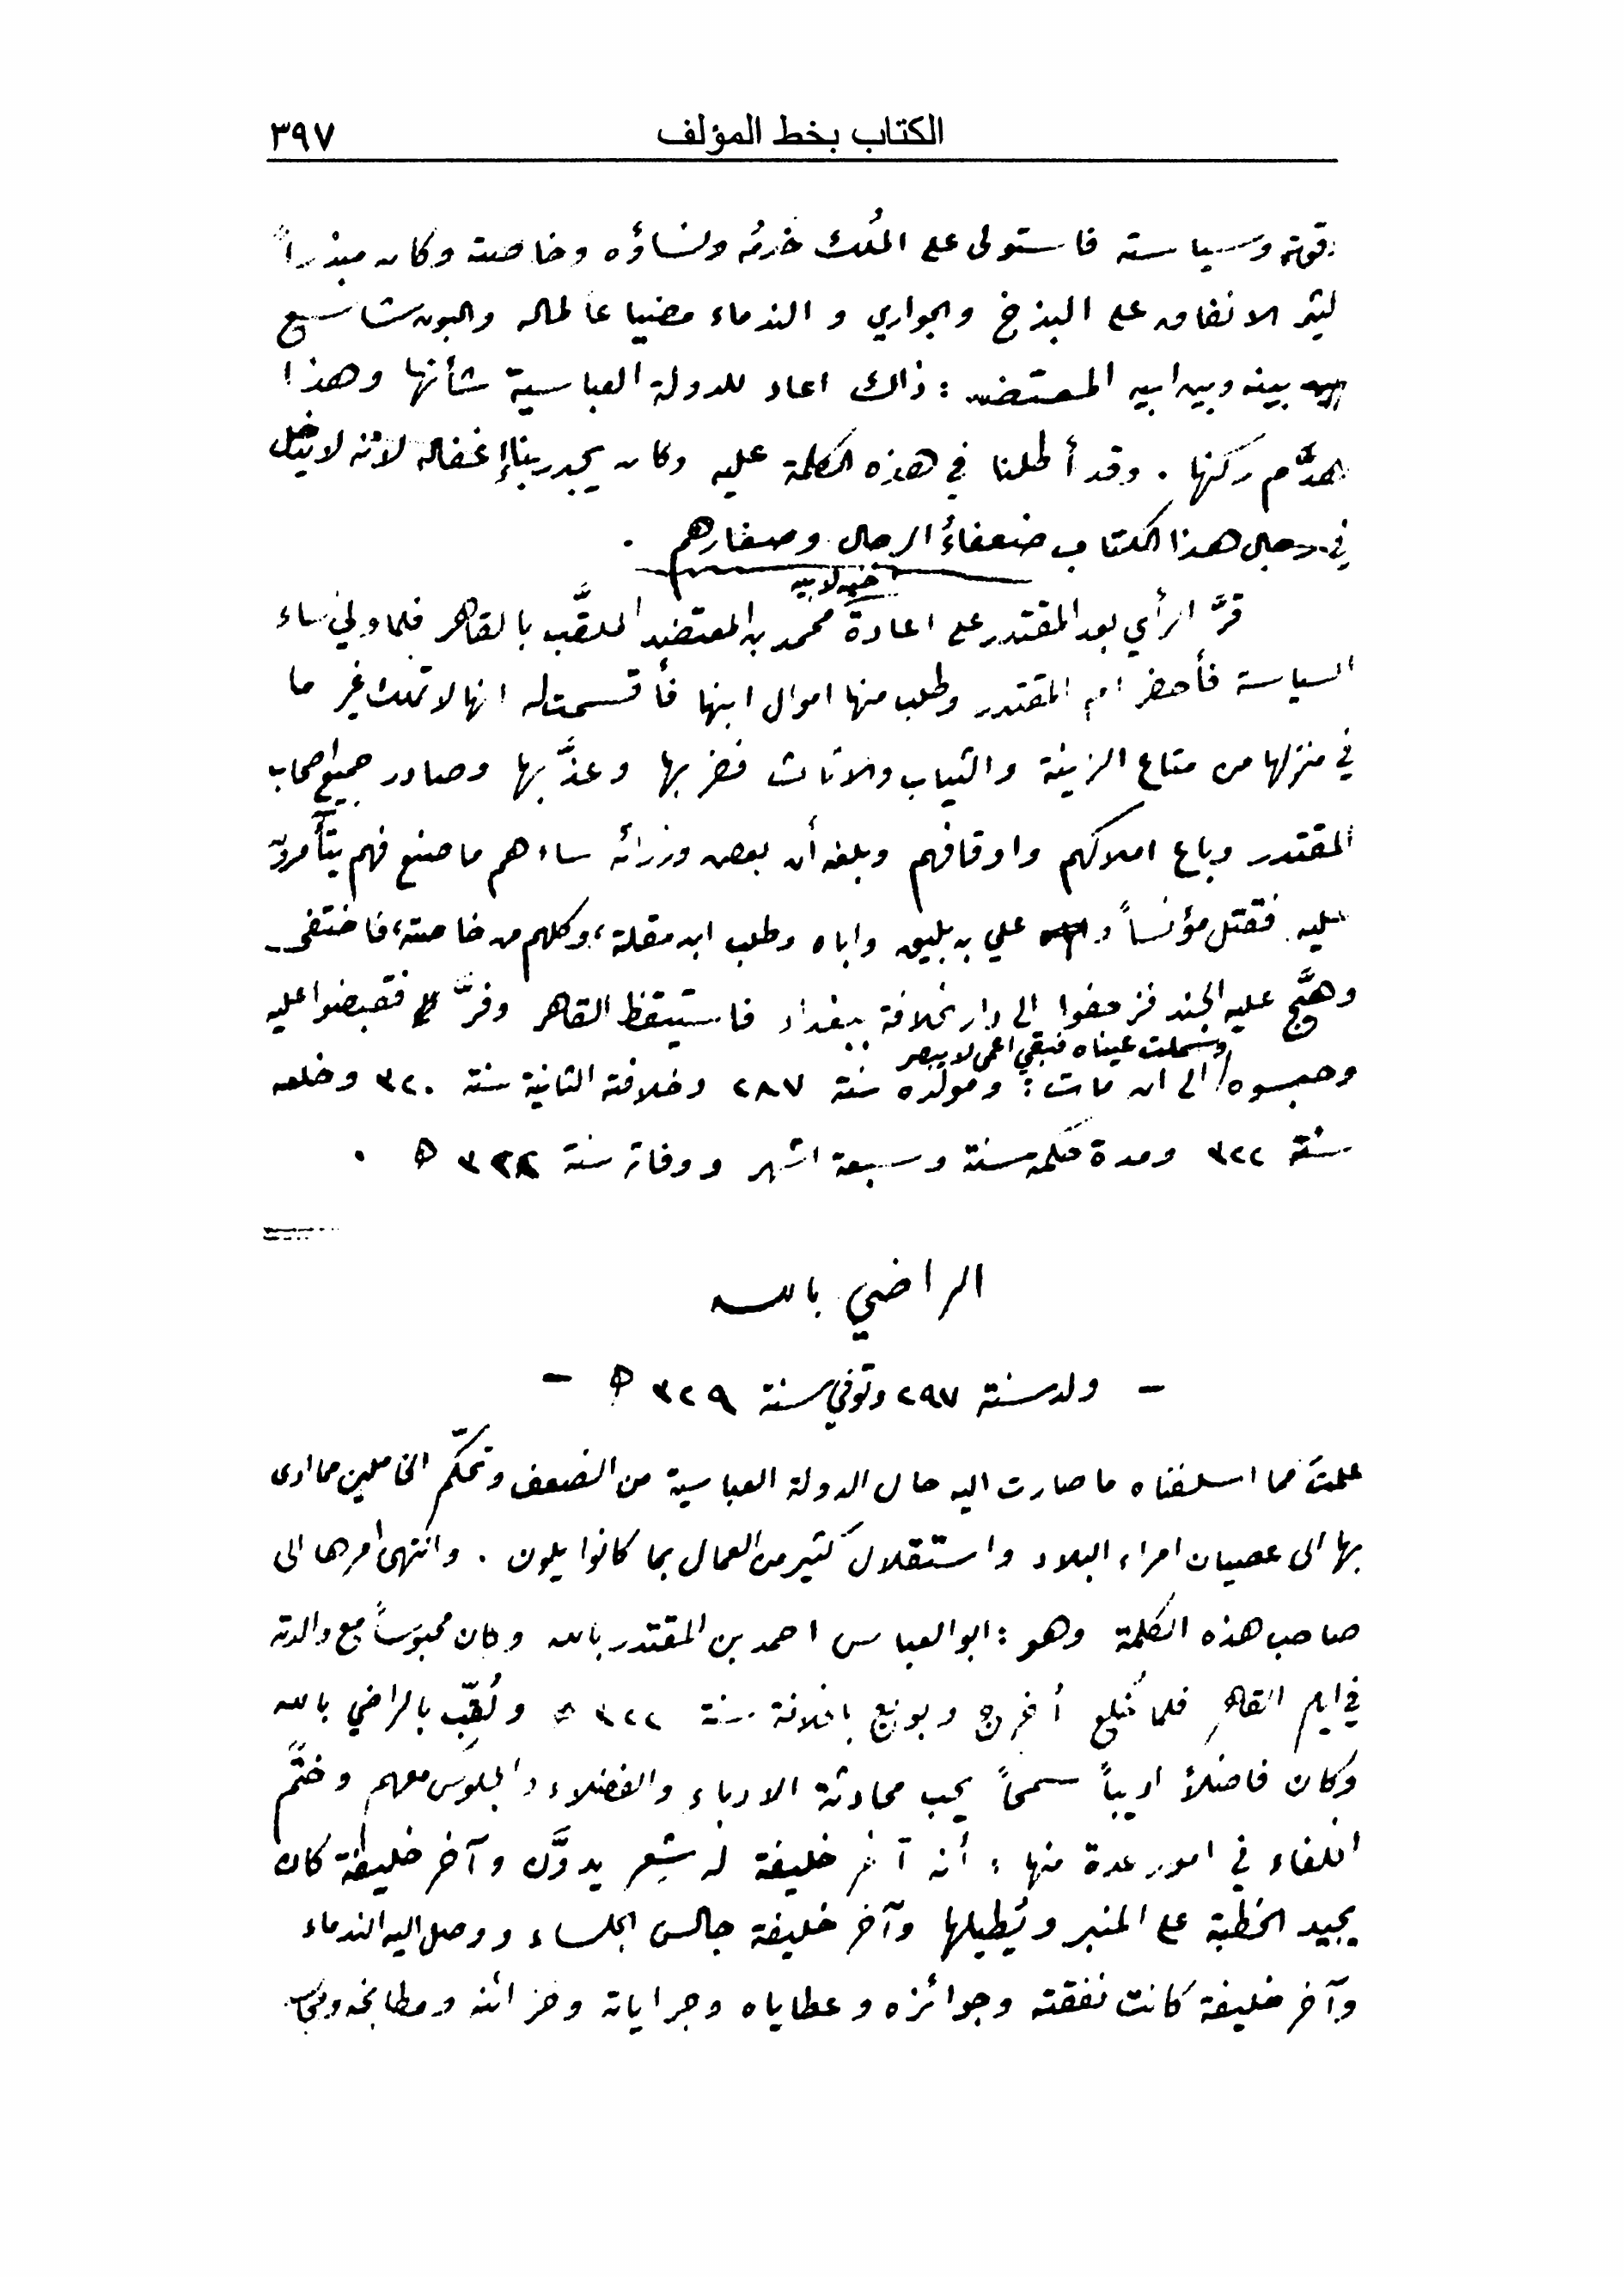 الكتاب بخط المؤلف ٣٩٧
قوته وسياسته فاستولى على المُلك خدمُه ونساؤه وخاصته وكان مبذراً
كثير الانفاق على البذخ والجواري و الندماء مضيعا عا لماله والبون شاسع
بينه وبين ابيه المعتضد : ذاك اعاد للدولة العباسية شأنها وهذا
هدَّم ركنها . وقد أطلنا في هذه الكلمة عليه وكان يجدر بنا إغفاله لانه لا يدخل
في رجال هذا الكتاب ضعفاءُ الرجال وصغارهم .
قرَّ الرأي بعد المقتدر على اعادة محمد بن المعتضد الملقَّب بالقاهر فلما ولي ساء
السياسة فأحضر ام المقتدر وطلب منها اموال ابنها فأقسمت له انها لا تملك غير ما
في منزلها من متاع الزينة والثياب والاثاث فضربها وعذَّبها وصادر جميع اصحاب
المقتدر وباع املاكهم واوقافهم وبلغه أن بعض وزرائه ساءهم ما صنع فهم يتآمرون
عليه فقتل مؤنساً و علي بن بليق واباه وطلب ابن مقلة ، وكلهم من خاصته ، فاختفى
وهيَّج عليه الجند فزحفوا الى دار الخلافة ببغداد فاستيقظ القاهر وفرَّ فقبضوا عليه
وسملت عيناه فبقي اعمى لا يبصر
وحبسوه الى ان مات : ومولده سنة ٢٨٧ وخلافته الثانية سنة ٣٢٠ وخلعه
سنة ٣٢٢ ومدة حكمه سنة وسبعة اشهر ووفاته سنة ه .
الراضي بالله
– ولد سنة ٢٩٧ وتوفي سنة ٣٢٩ ه –
علمتَ مما اسلفناه ما صارت اليه حال الدولة العباسية من الضعف وتحكّم الخاملين مما ادى
بها الى عصيان امراء البلاد واستقلال كثير من العمال بما كانوا يلون . وانتهى أمرها الى
صاحب هذه الكلمة وهو : ابو العباس احمد بن المقتدر بالله وكان محبوساً مع والدته
في ايام القاهر فلما خُلع أُخرج وبويع بالخلافة سنة ٣٢٢ ه ولُقِّب بالراضي بالله
وكان فاضلاً اديباً سمحاً يحب محادثة الادباء والفضلاء والجلوس معهم وختَّم
الخلفاء في امور عدة منها : أنه آخر خليفة له شِعر يدوَّن وآخر خليفة كان
يجيد الخطبة على المنبر ويُطيلها وآخر خليفة جالس الجلساء ووصل اليه الندماء
وآخر خليفة كانت نفقته وجوائزه وعطاياه وجراياته وخزائنه ومطابخه